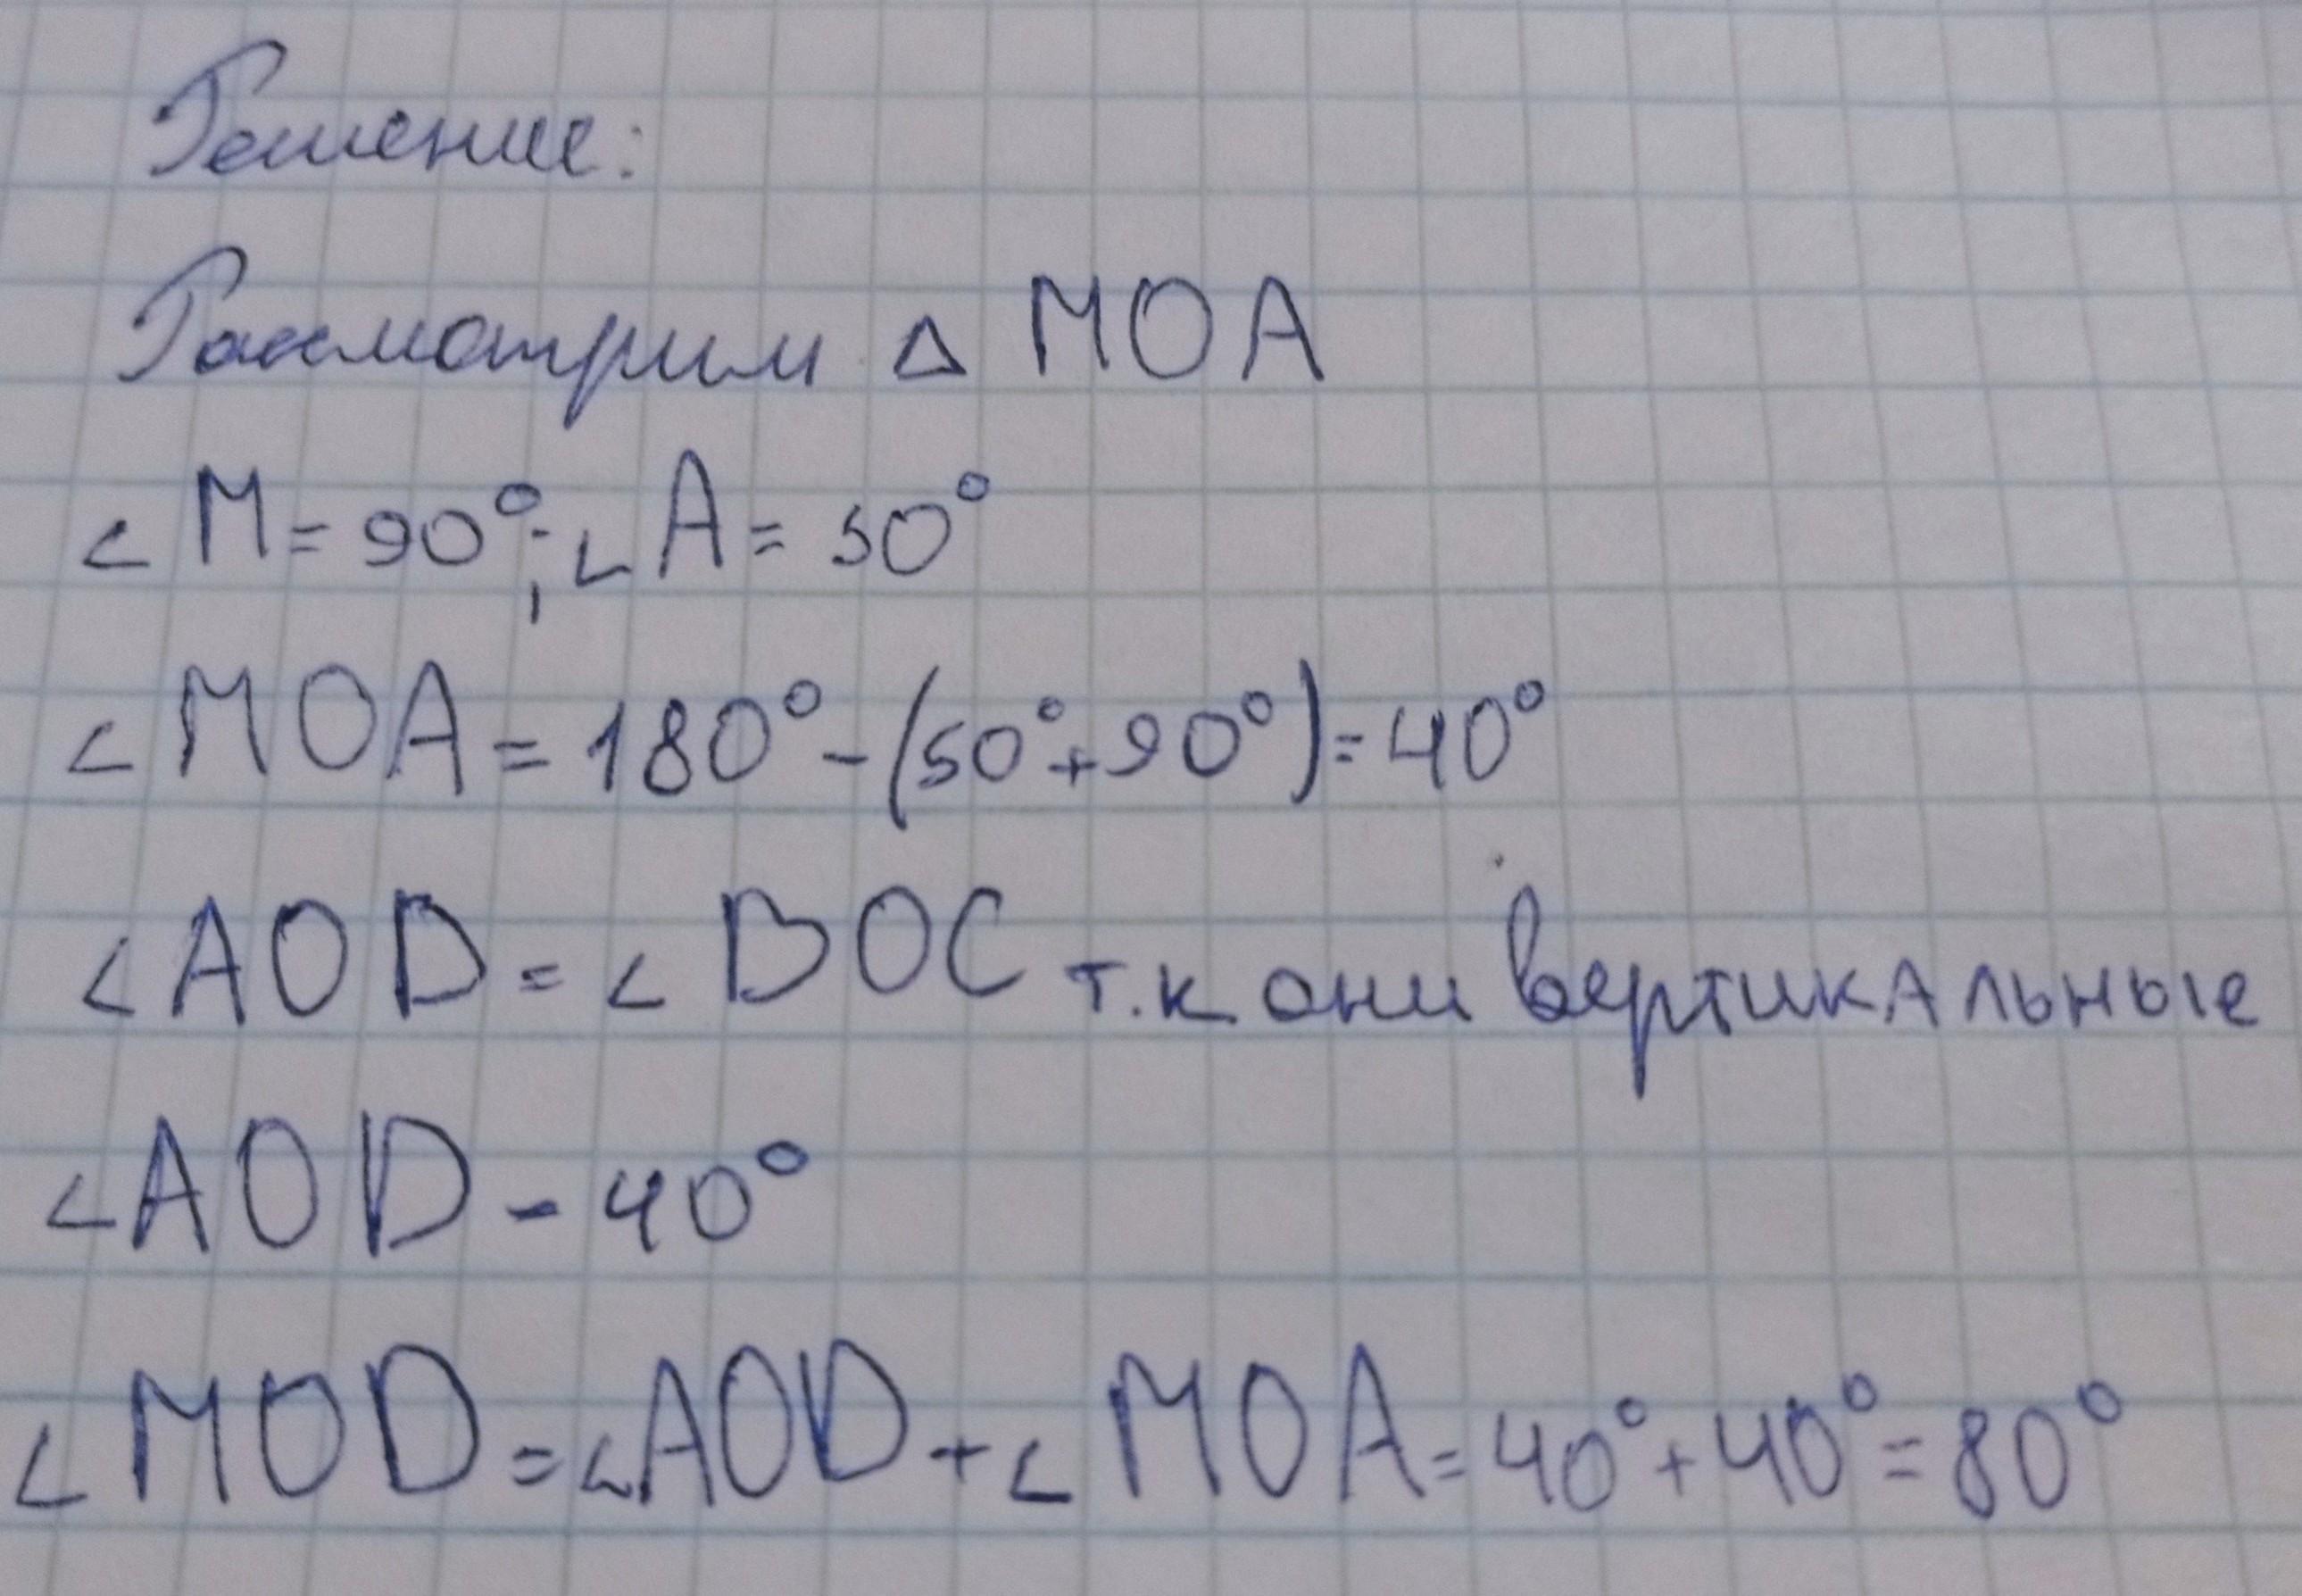 Решение:
Рассмотрим △ MOA
∠ M = 90°; ∠ A = 50°
∠ MOA = 180° - (50° + 90°) = 40°
∠ AOD = ∠ BOC т.к они вертикальные
∠ AOD - 40°
∠ MOD = ∠ AOD + ∠ MOA = 40° + 40° = 80°